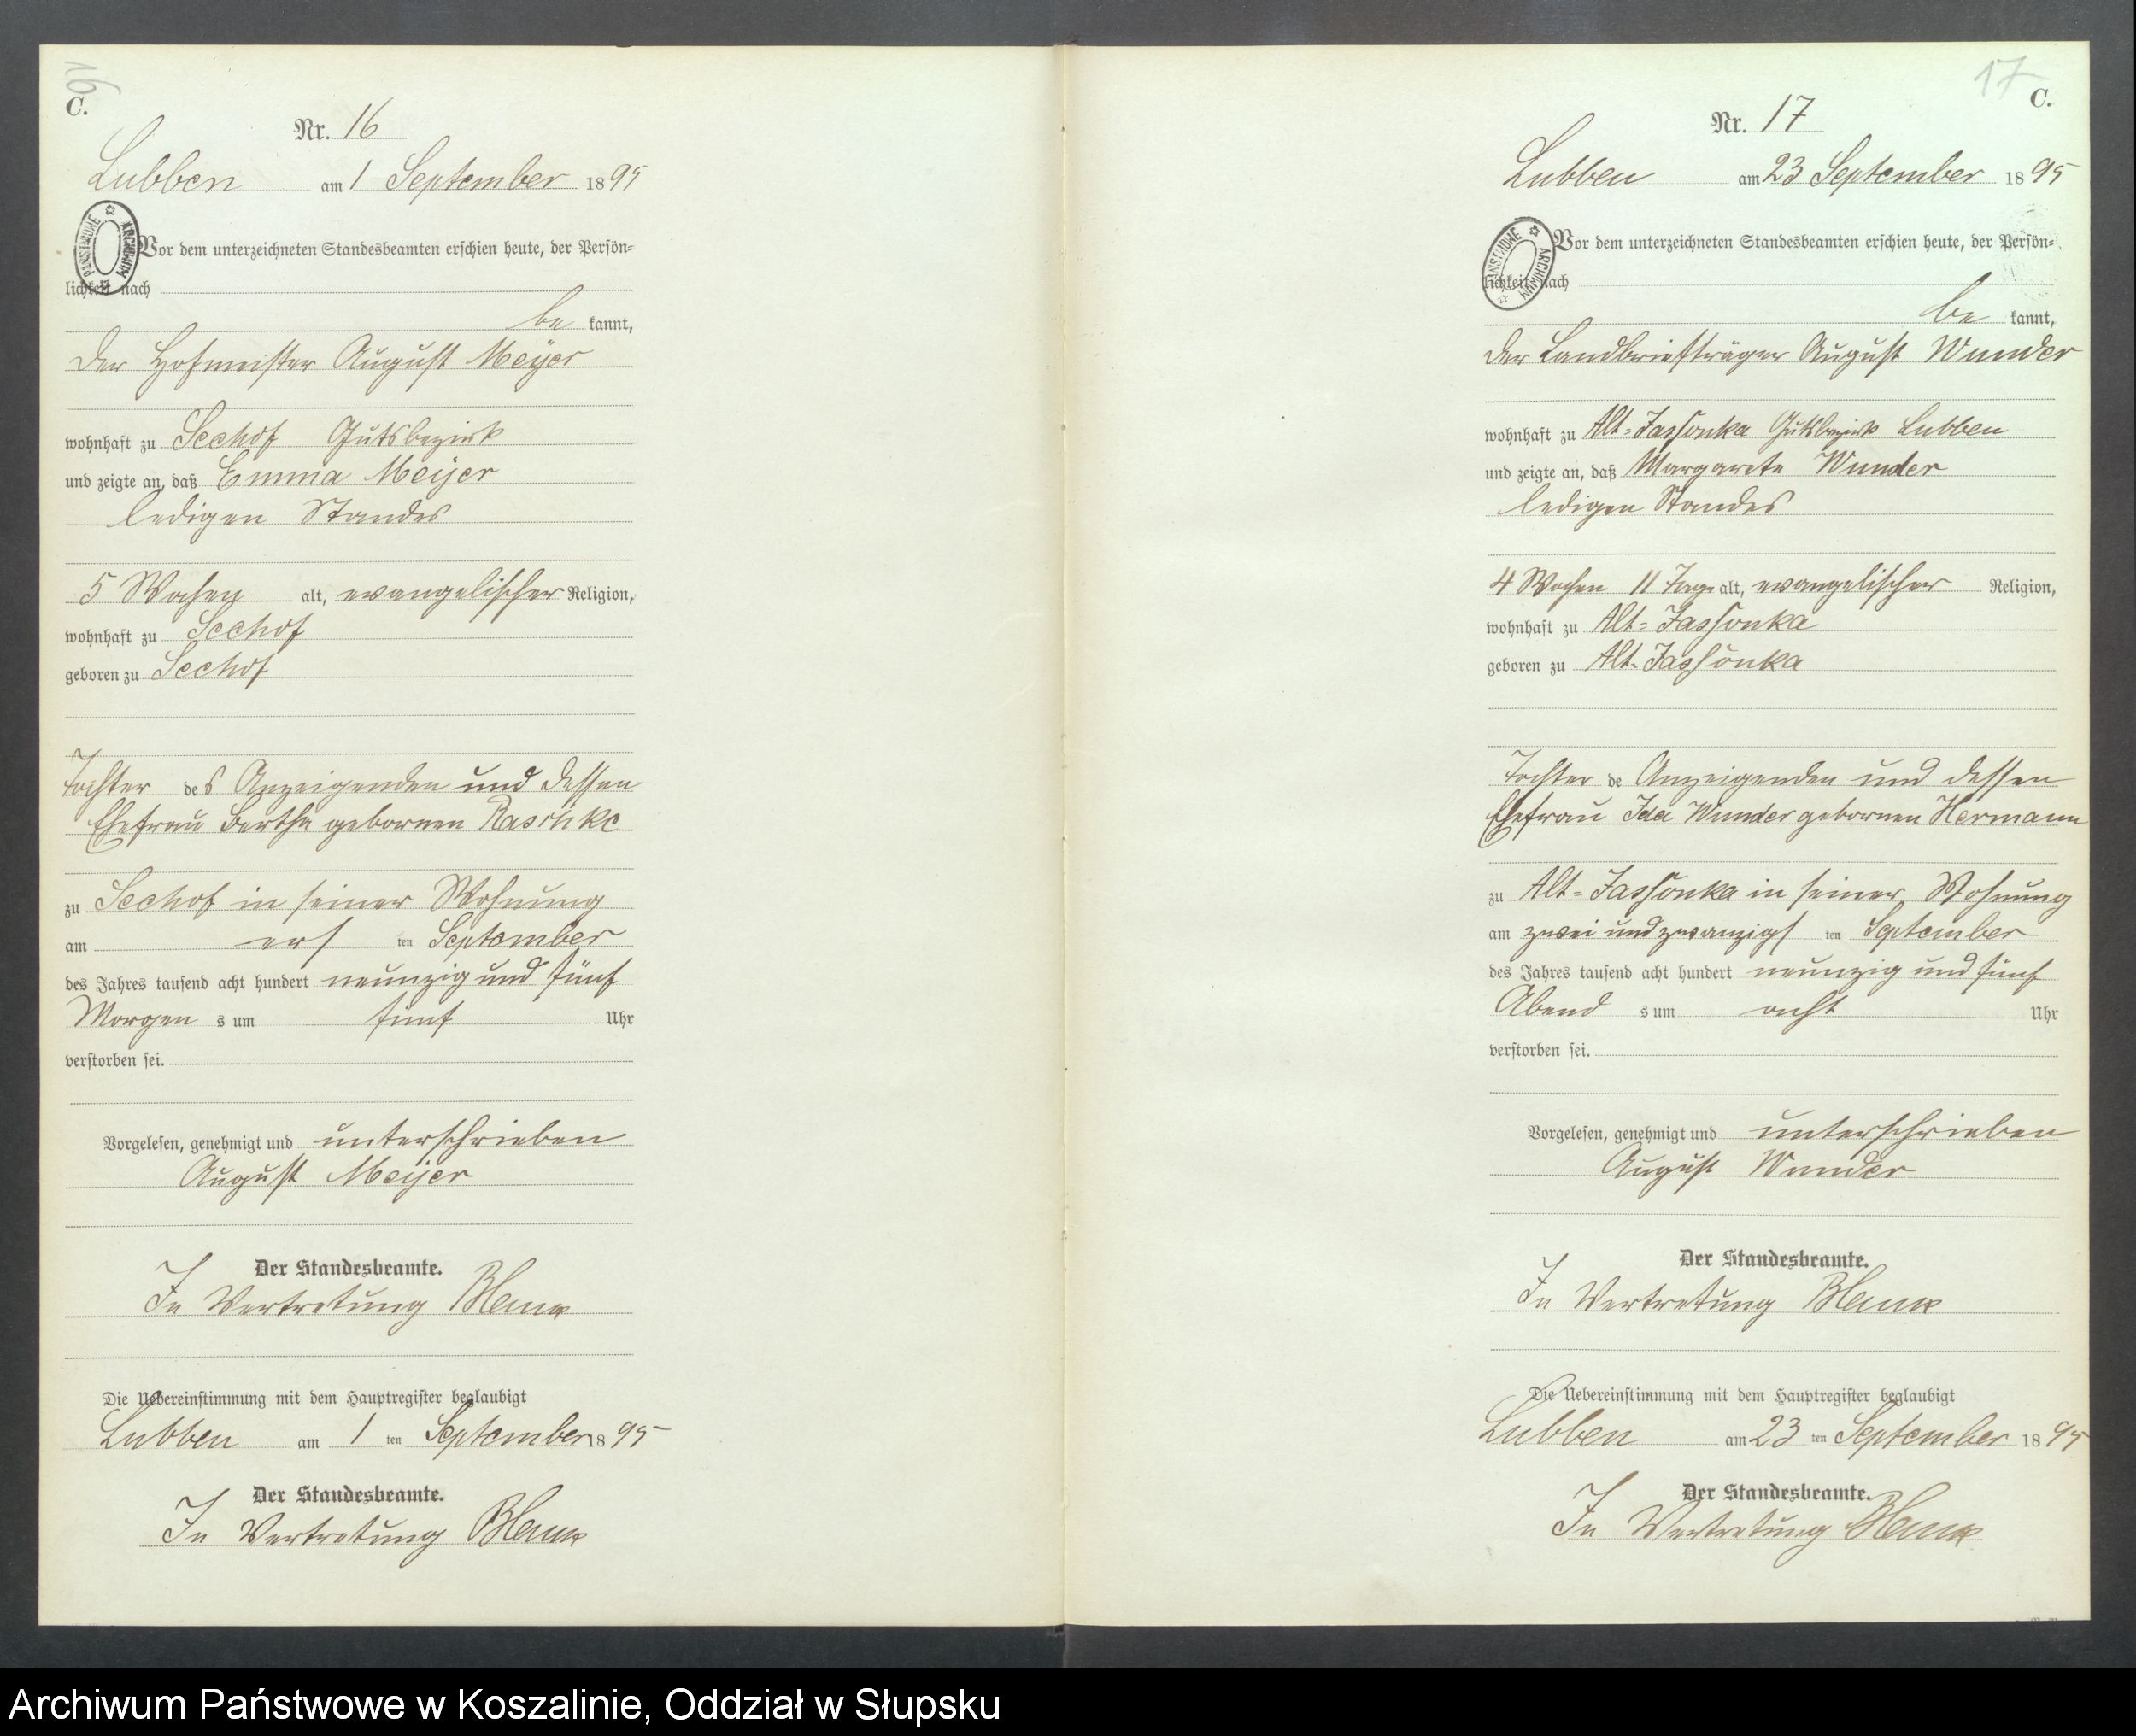 16
C.
Nr. 16
Lubben am 1 September 1895
PAŃSTWOWE ARCHIWUM
Vor dem unterzeichneten Standesbeamten erschien heute, der Persön-
lichkeit nach
be kannt,
der Hofmeister August Meyer
wohnhaft zu Seehof Gutsbezirk
und zeigte an, daß Emma Meyer
ledigen Standes
5 Wochen alt, evangelischer Religion,
wohnhaft zu Seehof
geboren zu Seehof
Tochter des Anzeigenden und dessen
Ehefrau Bertha gebornen Raschke
zu Seehof in seiner Wohnung
am ers ten September
des Jahres tausend acht hundert neunzig und fünf
Morgen s um fünf Uhr
verstorben sei.
Vorgelesen, genehmigt und unterschrieben
August Meyer
Der Standesbeamte.
In Vertretung Blank
Die Uebereinstimmung mit dem Hauptregister beglaubigt
Lubben am 1 ten September 1895
Der Standesbeamte.
In Vertretung Blank
17
C.
Nr. 17
Lubben am 23 September 1895
PAŃSTWOWE ARCHIWUM
Vor dem unterzeichneten Standesbeamten erschien heute, der Persön-
lichkeit nach
be kannt,
der Landbriefträger August Wunder
wohnhaft zu Alt-Jassonka Gutsbezirk Lubben
und zeigte an, daß Margarete Wunder
ledigen Standes
4 Wochen 11 Tage alt, evangelischer Religion,
wohnhaft zu Alt-Jassonka
geboren zu Alt-Jassonka
Tochter de Anzeigenden und dessen
Ehefrau Ida Wunder gebornen Hermann
zu Alt-Jassonka in seiner Wohnung
am zwei und zwanzigs ten September
des Jahres tausend acht hundert neunzig und fünf
Abend s um acht Uhr
verstorben sei.
Vorgelesen, genehmigt und unterschrieben
August Wunder
Der Standesbeamte.
In Vertretung Blank
Die Uebereinstimmung mit dem Hauptregister beglaubigt
Lubben am 23 ten September 1895
Der Standesbeamte.
In Vertretung Blank
Archiwum Państwowe w Koszalinie, Oddział w Słupsku